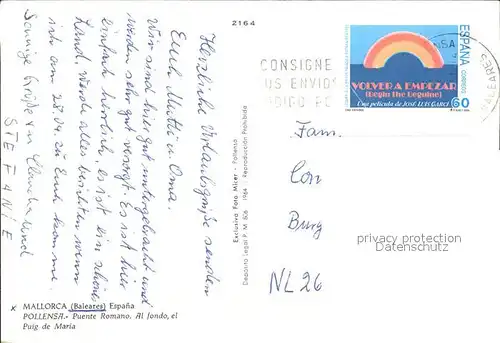 2164
Herzliche Urlaubsgrüße senden
Euch Mutti u. Oma.
Wir sind hier gut untergebracht und
werden sehr gut versorgt. Es ist hier
einfach herrlich, es ist ein schönes
Land. Werde alles berichten wenn
ich am 28.04. zu Euch komme.
Sonnige Grüße an und
STEFANIE
MALLORCA (Baleares) España
POLLENSA.- Puente Romano. Al fondo, el
Puig de María
Exclusiva Foto Micer - Pollensa
Depósito Legal P. M. 806 1984 Reproducción Prohibida
CONSIGNE
US ENVIO
DIGO PO
ESPAÑA
CORREOS
VOLVER A EMPEZAR
(Begin The Beguine)
Una película de JOSE LUIS GARCI
60
Fam.
Burg
NL 26
privacy protection
Datenschutz